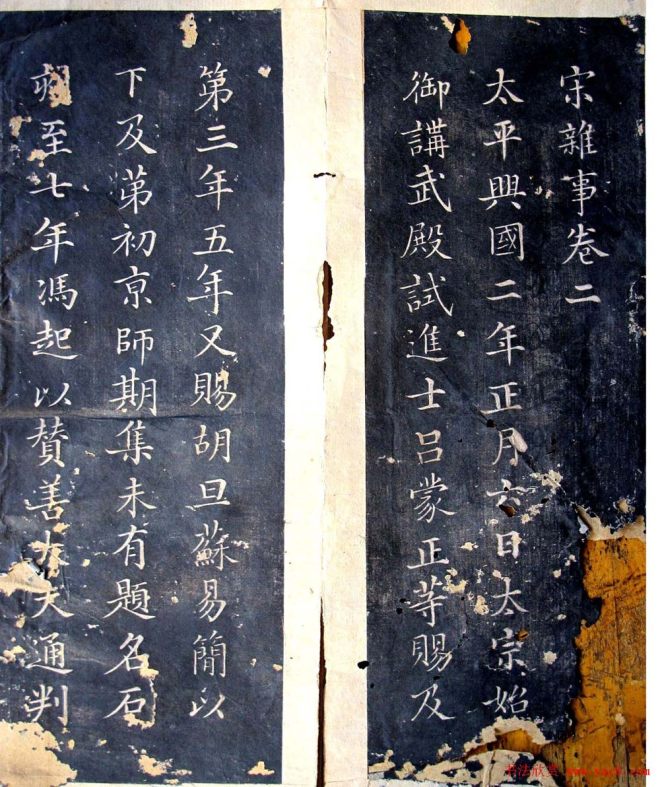 宋雜事卷二
太平興國二年正月六日太宗始
御講武殿試進士吕蒙正等賜及
第三年五年又賜胡旦蘇易簡以
下及第初京師期集未有題名石
刻至七年馮起以贊善大夫通判
书法欣赏 www.yac8.com